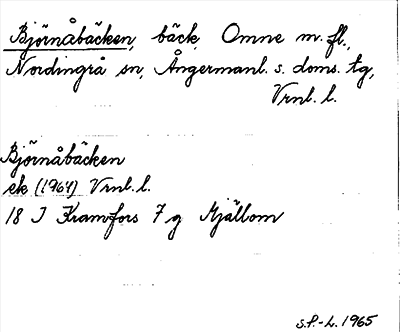 Björnåbäcken, bäck, Omne m.fl.,
Nordingrå sn, Ångermanl. s. doms. tg,
Vrnl. l.
Björnåbäcken
ek (1961) Vrnl. l.
18 J Kramfors 7 g Mjällom
S.P.-L. 1965